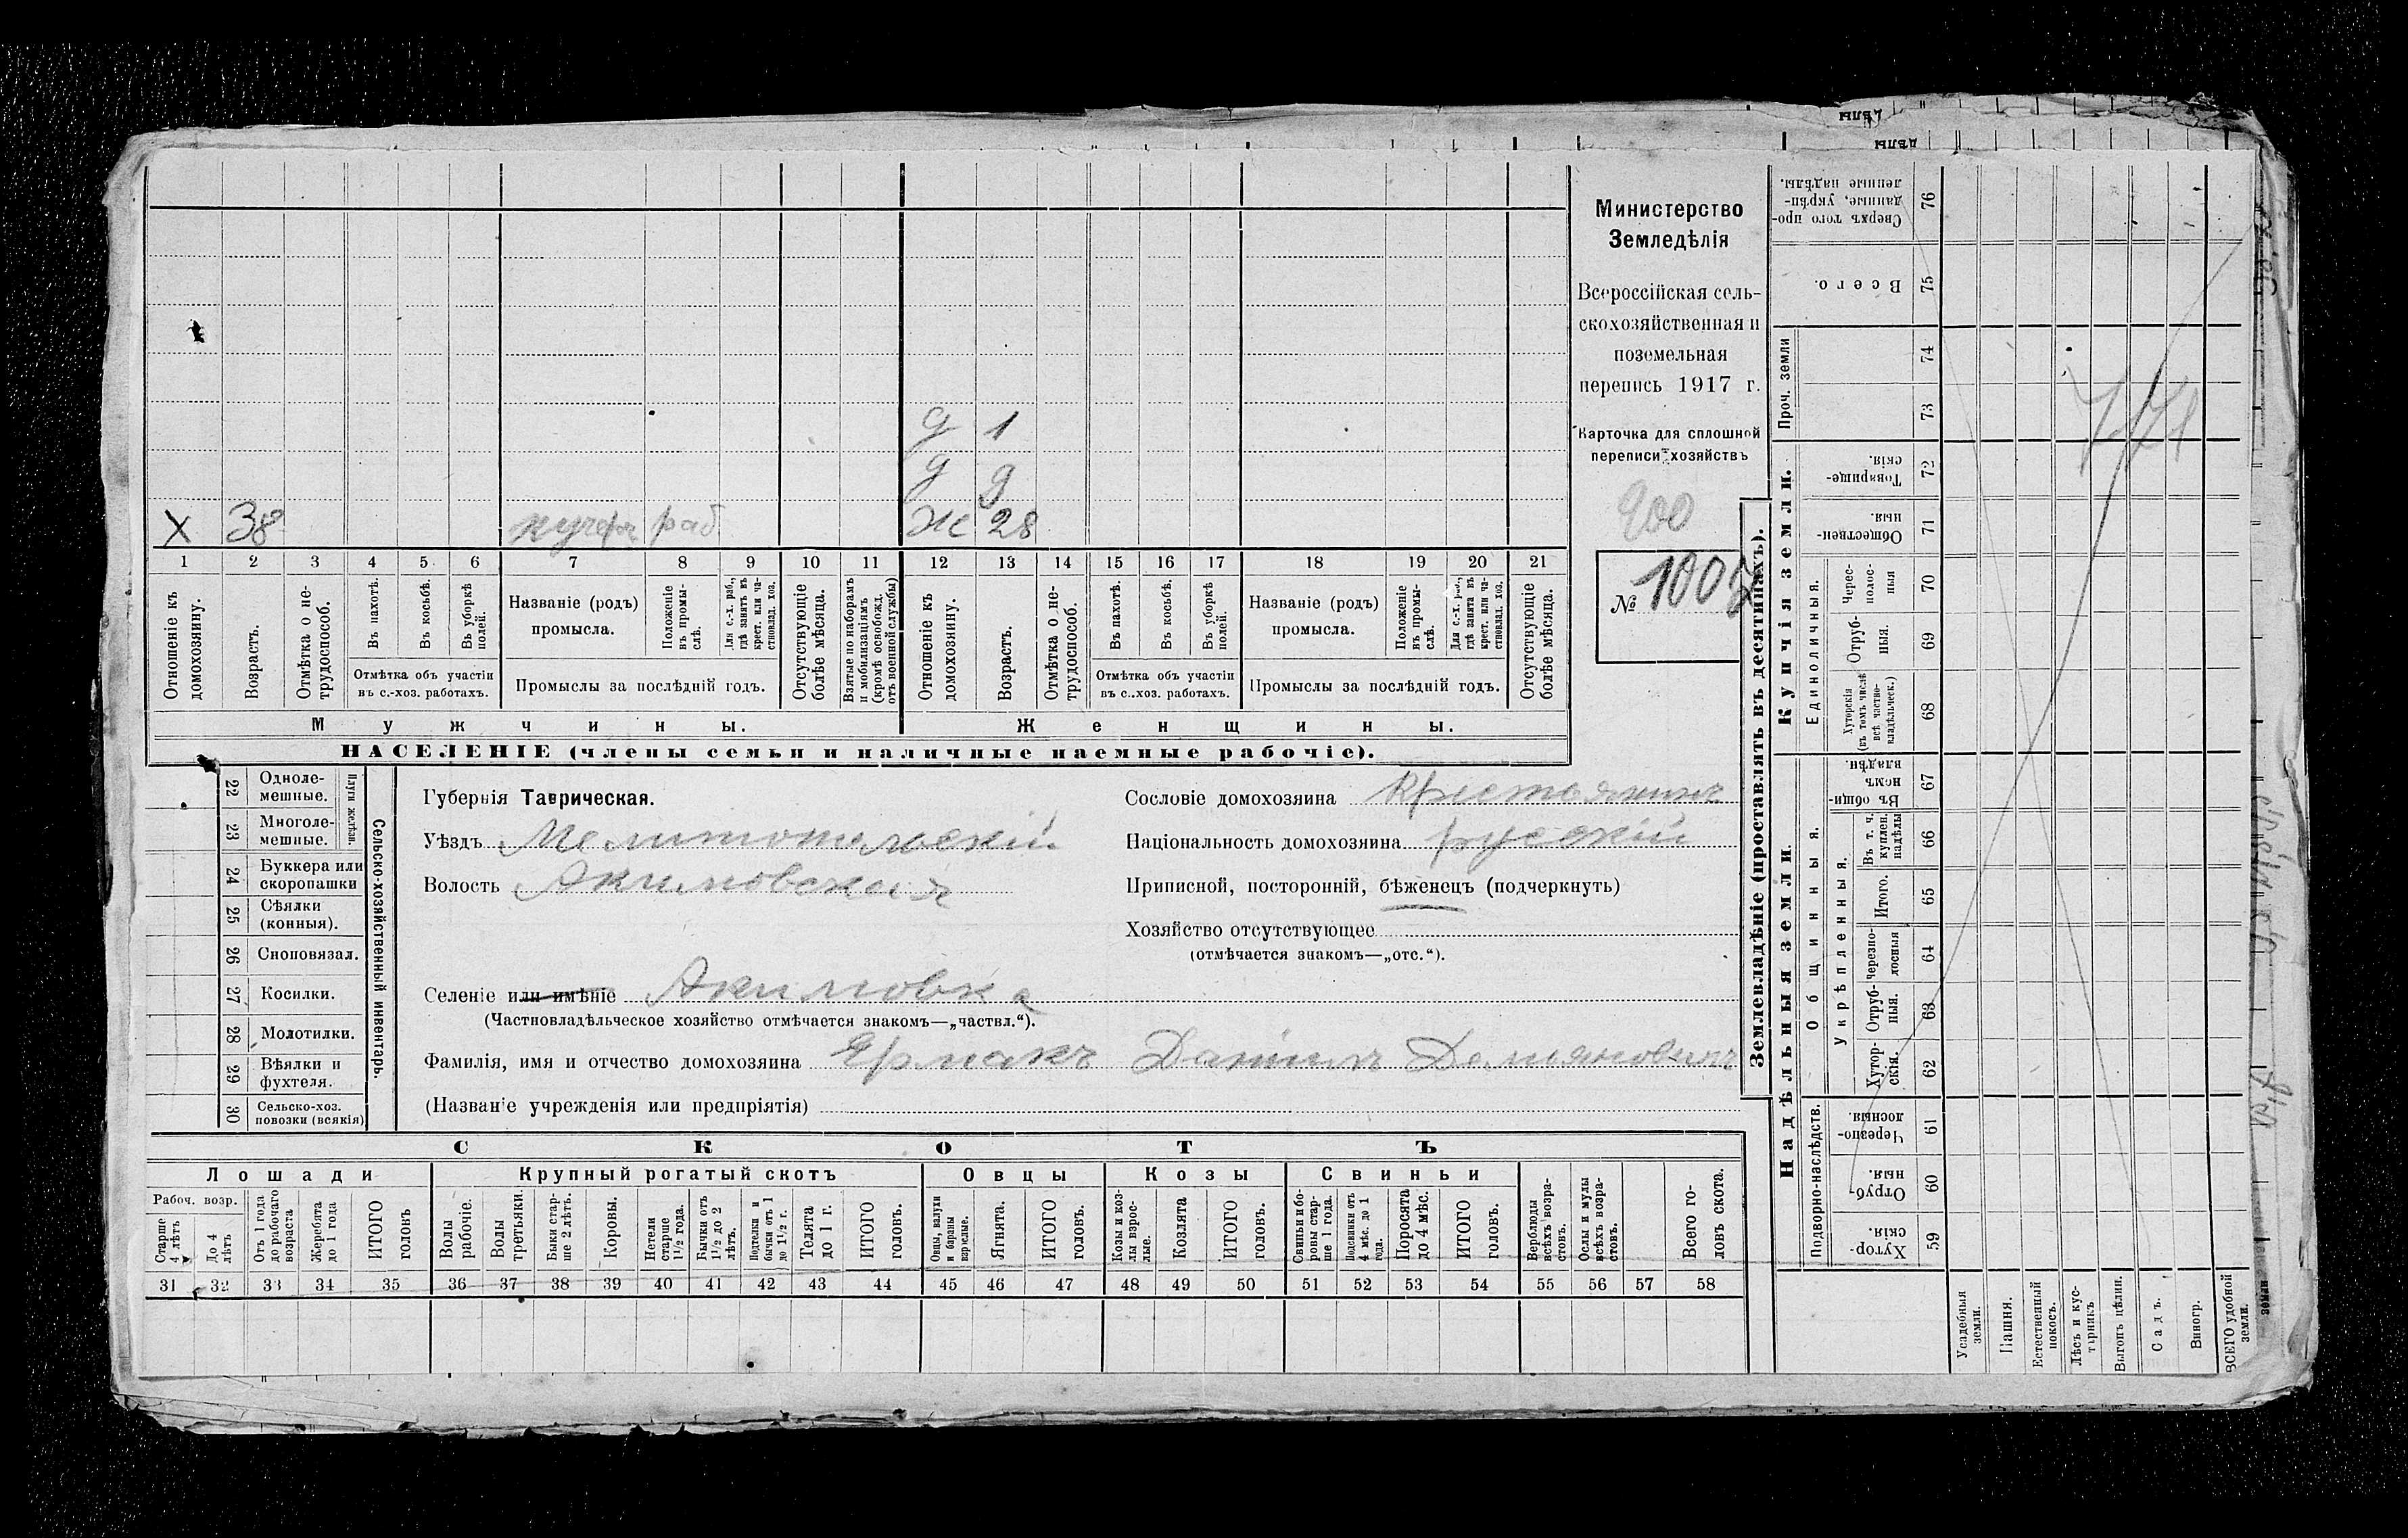 Министерство
Земледѣлія
Всероссійская сель-
скохозяйственная и
поземельная
перепись 1917 г.
Карточка для сплошной
переписи хозяйствъ
900
№ 1007
д 1
д 9
Х 38 кучеръ раб Ж 28
1 2 3 4 5 6 7 8 9 10 11 12 13 14 15 16 17 18 19 20 21
Отношеніе къ домохозяину.
Возрастъ.
Отмѣтка о не-трудоспособ.
Въ пахотѣ.
Въ косьбѣ.
Въ уборкѣ полей.
Отмѣтка объ участіи
въ с.-хоз. работахъ.
Названіе (родъ)
промысла.
Положеніе въ промы-слѣ.
Для с.-х. раб., гдѣ занятъ въ крест. или ча-стновлад. хоз.
Промыслы за послѣдній годъ.
Отсутствующіе болѣе мѣсяца.
Взятые по наборамъ и мобилизаціямъ (кромѣ освобожд. отъ военной службы)
Отношеніе къ домохозяину.
Возрастъ.
Отмѣтка о не-трудоспособ.
Въ пахотѣ.
Въ косьбѣ.
Въ уборкѣ полей.
Отмѣтка объ участіи
въ с..хоз. работахъ.
Названіе (родъ)
промысла.
Положеніе въ промы-слѣ.
Для с.-х. раб., гдѣ занята въ крест. или ча-стновлад. хоз.
Промыслы за послѣдній годъ.
Отсутствующіе болѣе мѣсяца.
Мужчины. Женщины.
НАСЕЛЕНІЕ (члены семьи и наличные наемные рабочіе).
Сельско-хозяйственный инвентарь.
Плуги желѣзн.
22 Одноле-мешные.
23 Многоле-мешные.
24 Буккера или скоропашки
25 Сѣялки (конныя).
26 Сноповязал.
27 Косилки.
28 Молотилки.
29 Вѣялки и фухтеля.
30 Сельско-хоз. повозки (всякія)
Губернія Таврическая.
Уѣздъ Мелитопольскій
Волость Акимовская
Селеніе или имѣніе Акимовка
(Частновладѣльческое хозяйство отмѣчается знакомъ—„частвл.“).
Фамилія, имя и отчество домохозяина Ермакъ Даніилъ Демьяновичъ
(Названіе учрежденія или предпріятія)
Сословіе домохозяина Крестьянинъ
Національность домохозяина русскій
Приписной, посторонній, бѣженецъ (подчеркнуть)
Хозяйство отсутствующее
(отмѣчается знакомъ—„отс.“).
СКОТЪ
Лошади
Крупный рогатый скотъ
Овцы
Козы
Свиньи
Рабоч. возр.
Старше 4 лѣтъ
До 4 лѣтъ
Отъ 1 года до рабочаго возраста
Жеребята до 1 года
ИТОГО головъ
Волы рабочіе.
Волы третьяки.
Быки стар-ше 2 лѣтъ.
Коровы.
Нетели старше 1½ года.
Бычки отъ 1½ до 2 лѣтъ.
Подтелки и бычки отъ 1 до 1½ г.
Телята до 1 г.
ИТОГО головъ.
Овцы, валухи и бараны взрослые.
Ягнята.
ИТОГО головъ.
Козы и коз-лы взрос-лые.
Козлята
ИТОГО головъ.
Свиньи и бо-ровы стар-ше 1 года.
Подсвинки отъ 4 мѣс. до 1 года.
Поросята до 4 мѣс.
ИТОГО головъ.
Верблюды всѣхъ возра-стовъ.
Ослы и мулы всѣхъ возра-стовъ.
Всего го-ловъ скота.
31 32 33 34 35 36 37 38 39 40 41 42 43 44 45 46 47 48 49 50 51 52 53 54 55 56 57 58
Землевладѣніе (проставлять въ десятинахъ).
Надѣльныя земли.
Купчія земли.
Проч. земли
Подворно-наслѣдств.
Общинныя.
Укрѣпленныя.
Единоличныя.
Хутор-скія. 59
Отруб-ныя. 60
Черезпо-лосныя. 61
Хутор-скія. 62
Отруб-ныя. 63
Черезпо-лосныя 64
Итого. 65
Въ т. ч. куплен. надѣлы 66
Въ общин-номъ владѣн. 67
Хуторскія (въ томъ числѣ всѣ частно-владѣльческ.) 68
Отруб-ныя. 69
Черес-полос-ныя 70
Обществен-ныя. 71
Товарище-скія. 72
73
74
Всего. 75
Сверхъ того про-данные, укрѣп-ленные надѣлы. 76
Усадебныя земли.
Пашня.
Естественный покосъ.
Лѣсъ и кус-тарникъ
Выгонъ цѣлин.
Садъ.
Виногр.
ВСЕГО удобной земли.